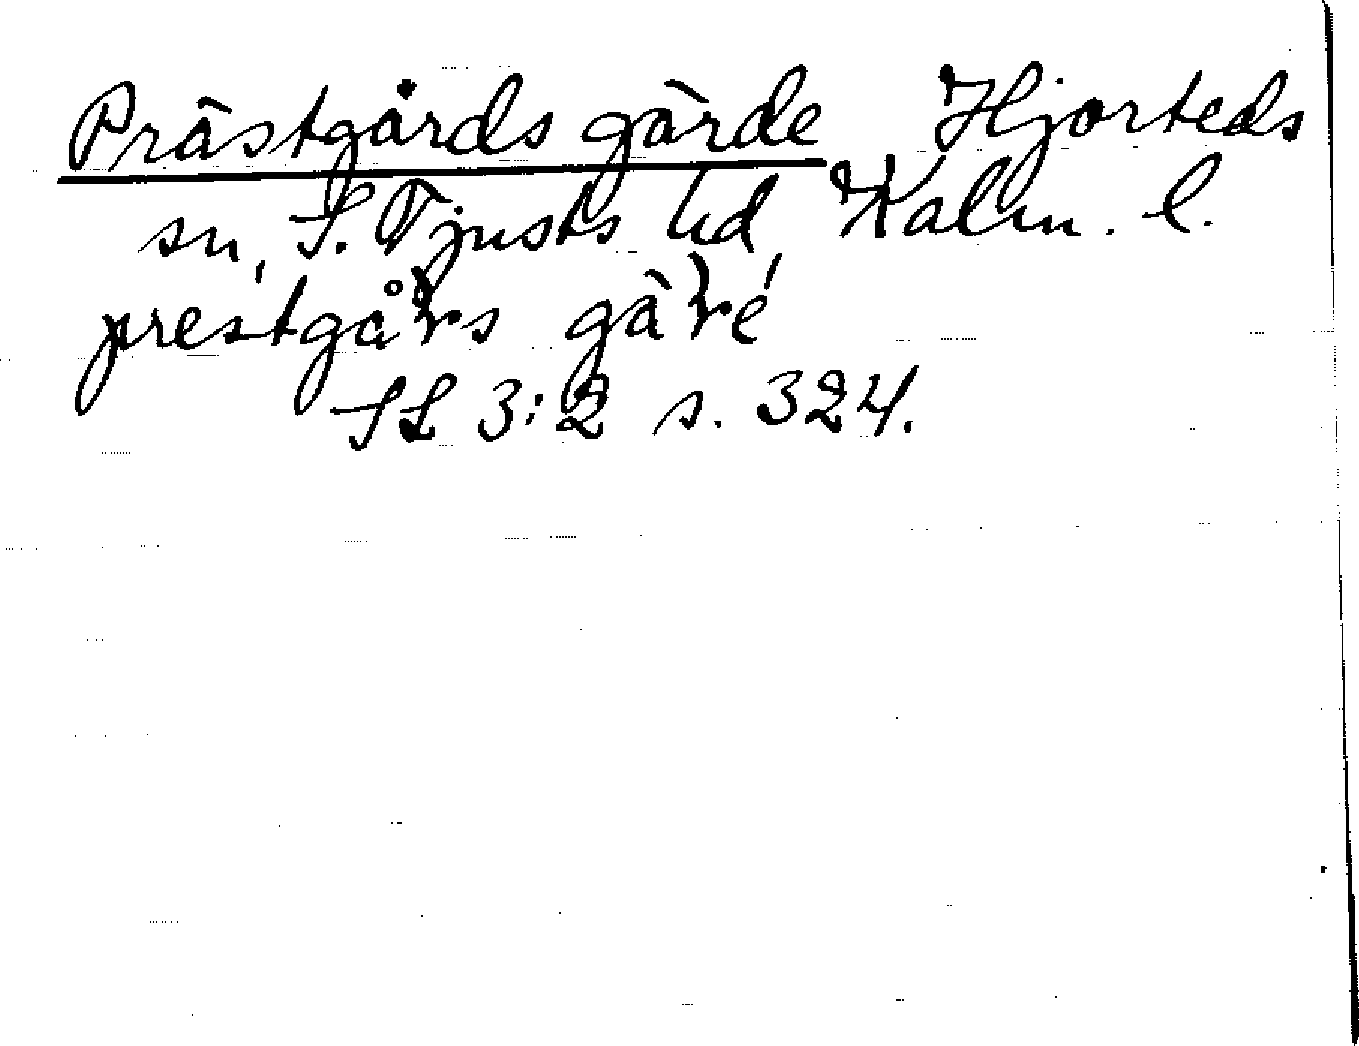 Prästgårds gärde Hjorteds
sn, S. Tjusts hd Kalm. l.
prestgårs gäre
SL 3:2 s. 324.